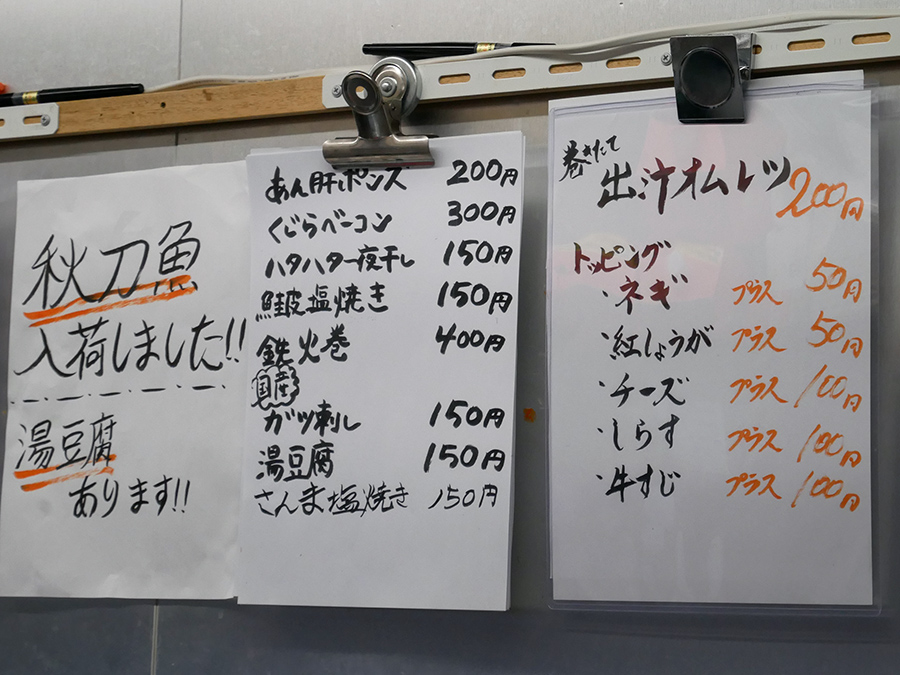 秋刀魚
入荷しました!!
湯豆腐
あります!!
あん肝ポンズ 200円
くじらベーコン 300円
ハタハタ一夜干し 150円
鮭皮塩焼き 150円
鉄火巻 400円
国産
ガツ刺し 150円
湯豆腐 150円
さんま塩焼き 150円
巻きたて
出汁オムレツ 200円
トッピング
・ネギ プラス 50円
・紅しょうが プラス 50円
・チーズ プラス 100円
・しらす プラス 100円
・牛すじ プラス 100円